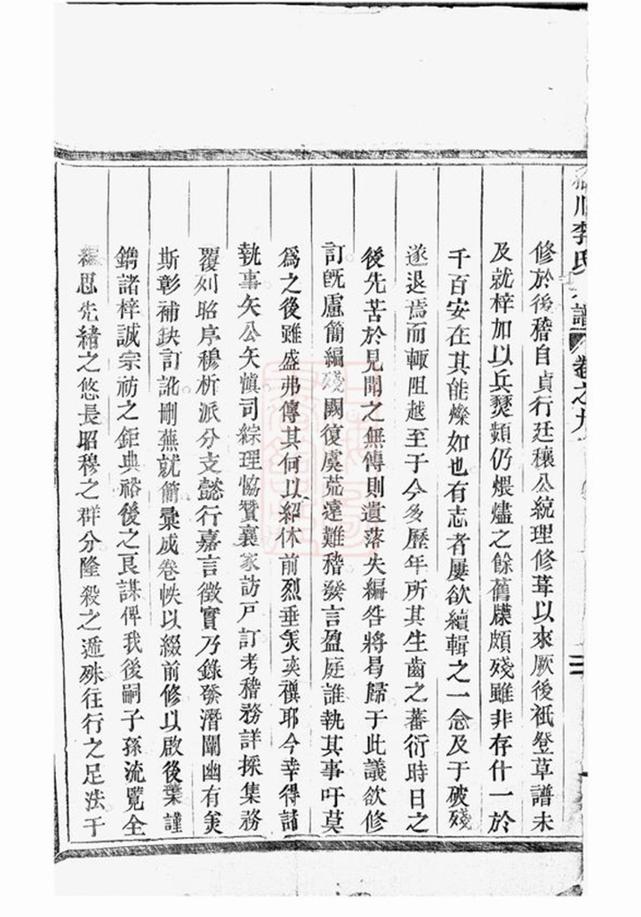 李氏
譜
卷之九
修於後稽自貞行廷穰公統理修葺以來厥後祇登草譜未
及就梓加以兵燹頻仍煨燼之餘舊牒頗殘雖非存什一於
千百安在其能燦如也有志者屢欲續輯之一念及于破殘
遂退焉而輒阻越至于今多歷年所其生齒之蕃衍時日之
後先苦於見聞之無傳則遺落失編咎將曷歸于此議欲修
訂旣慮簡編殘闕復虞荒遠難稽發言盈庭誰執其事吁莫
爲之後雖盛弗傳其何以紹休前烈垂奕禩耶今幸得諸
執事矢公矢愼司綜理協贊襄家訪戸訂考稽務詳採集務
覆列昭序穆析派分支懿行嘉言徵實乃錄發潛闡幽有美
斯彰補缺訂訛刪蕪就簡彙成卷帙以綴前修以啟後葉謹
鐫諸梓誠宗祊之鉅典裕後之良謀俾我後嗣子孫流覽全
編思先緒之悠長昭穆之群分隆殺之遞殊往行之足法于
三